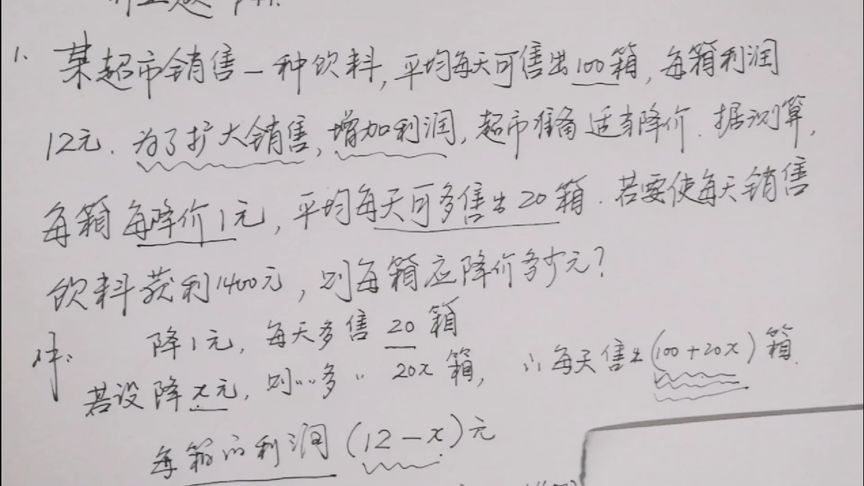 1. 某超市销售一种饮料,平均每天可售出100箱,每箱利润
12元.为了扩大销售,增加利润,超市准备适当降价.据测算,
每箱每降价1元,平均每天可多售出20箱.若要使每天销售
饮料获利1400元,则每箱应降价多少元?
降1元,每天多售20箱
若设降x元,则〃多〃20x箱,∴每天售出(100+20x)箱.
每箱的利润(12-x)元